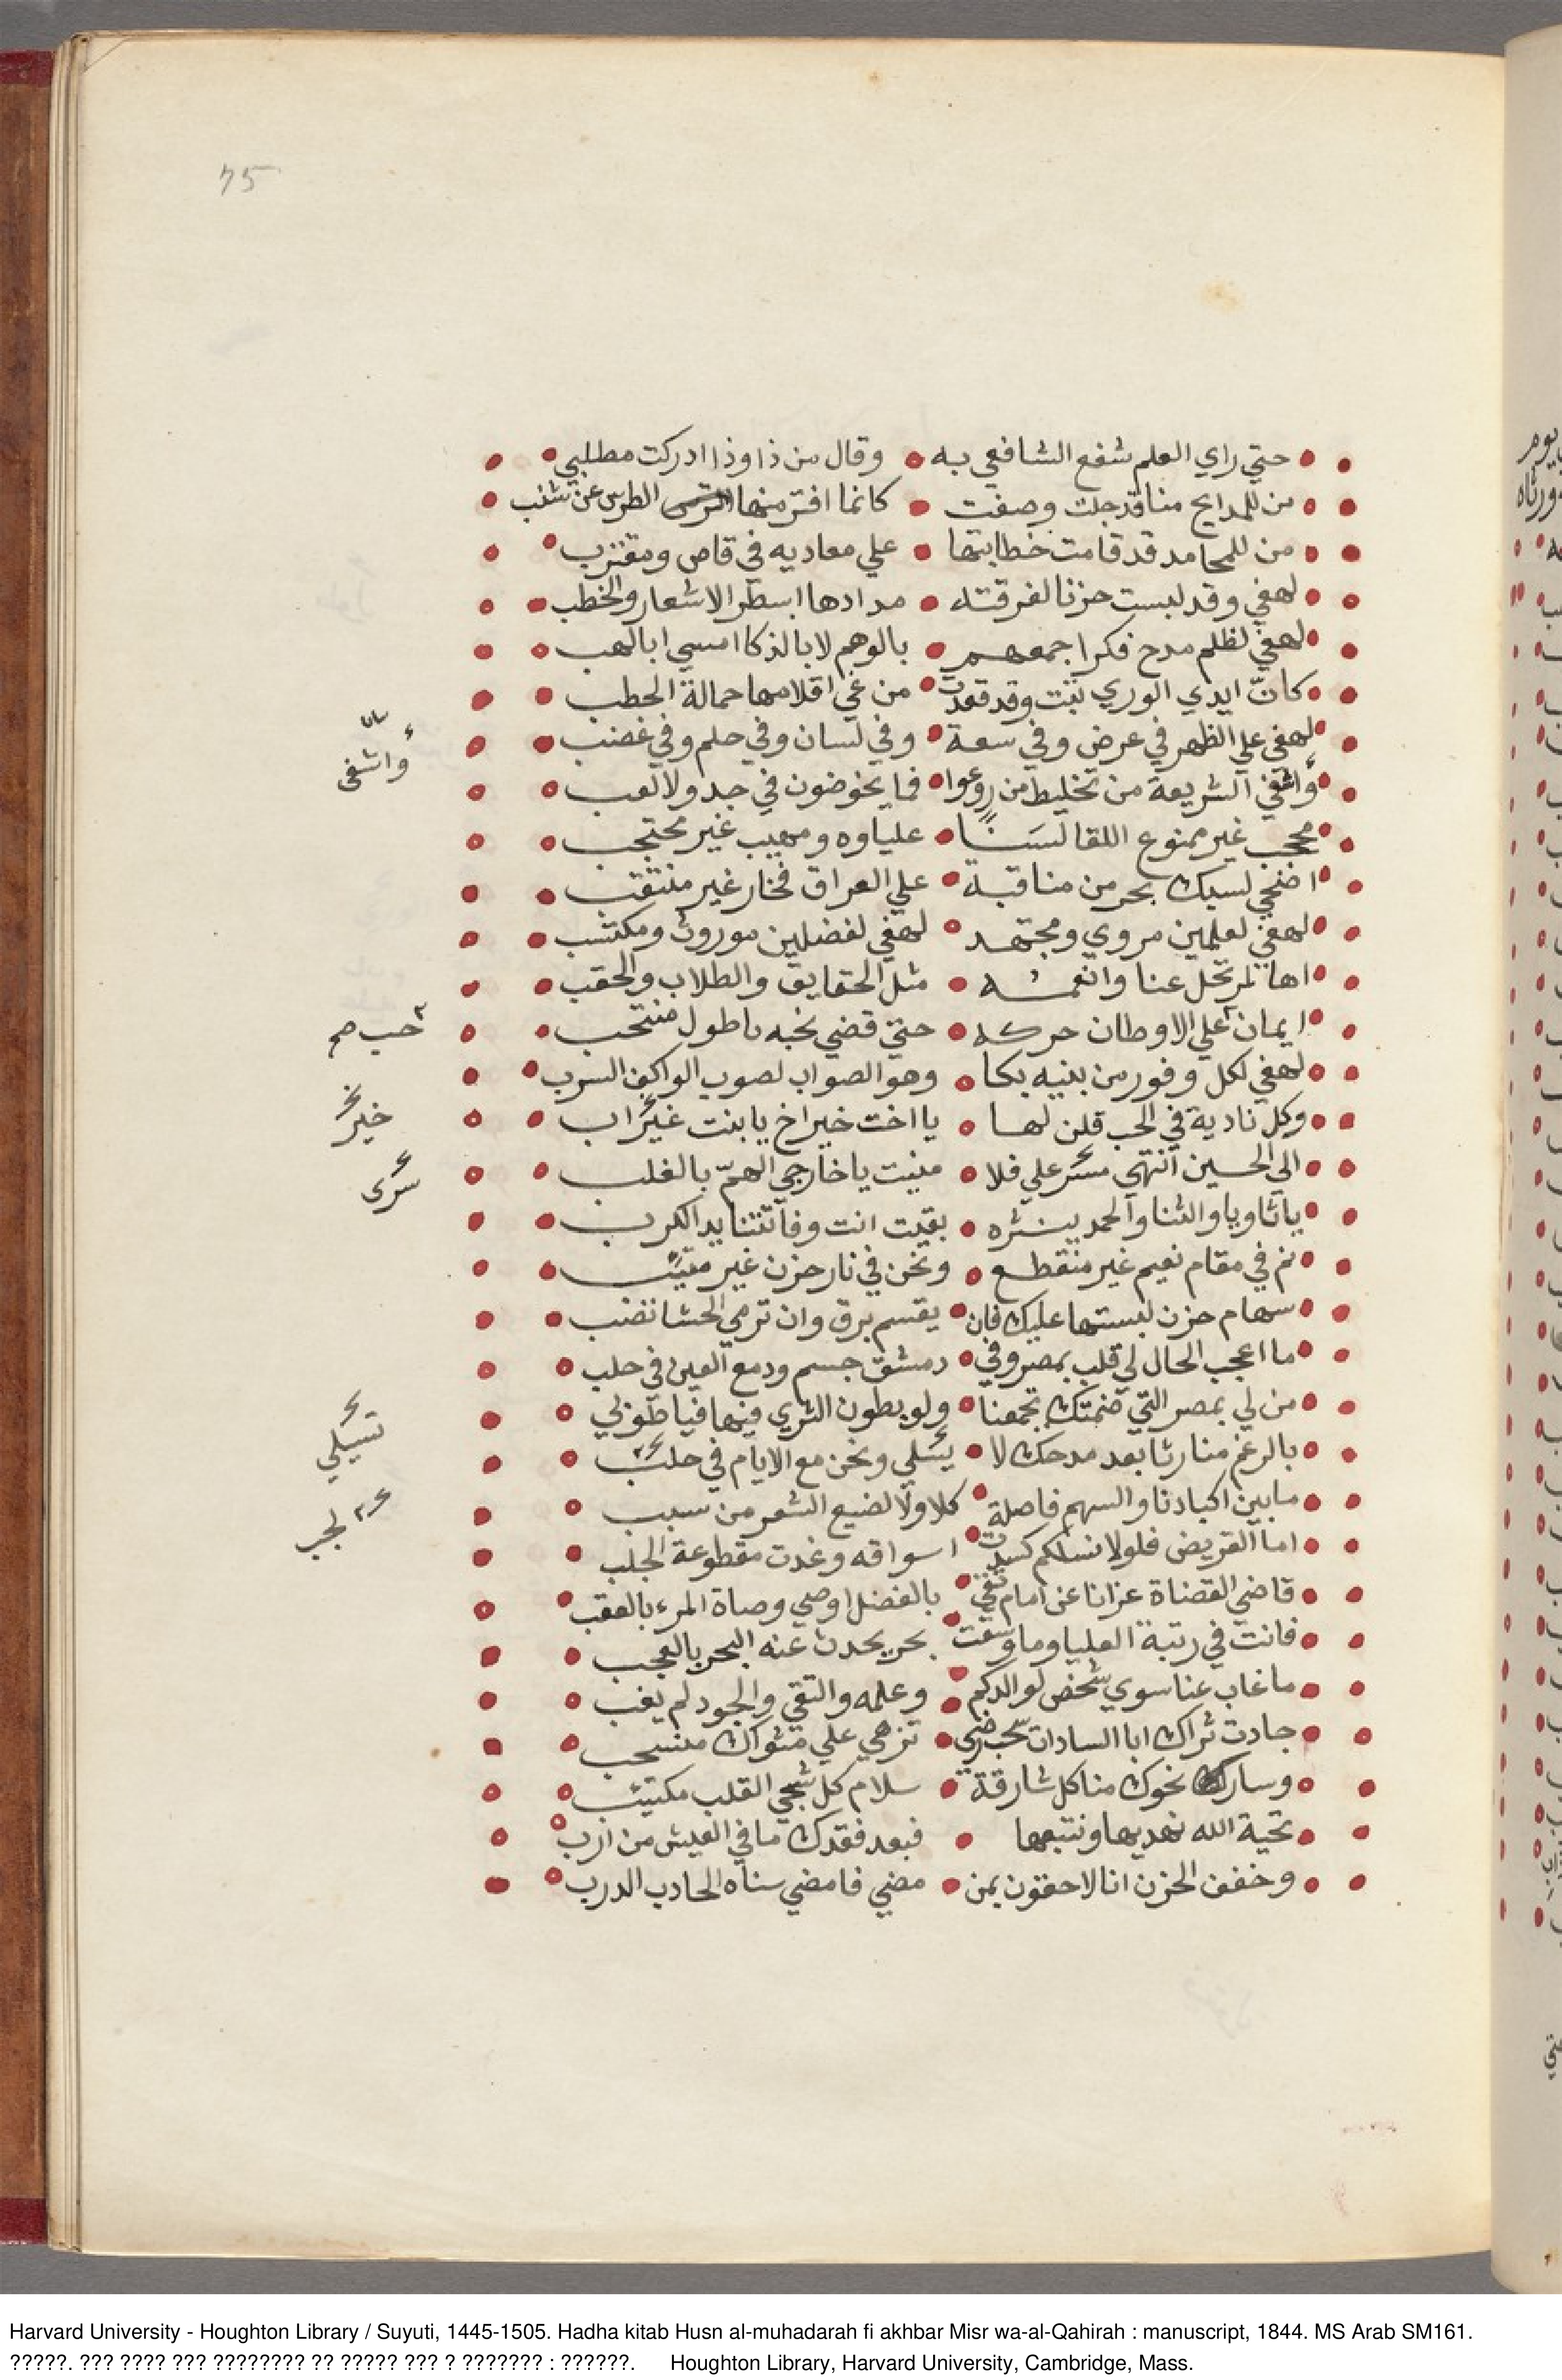 75
حتي راي العلم شفع الشافعي به وقال من ذا وذا ادركت مطلبي
من للمدايح منا قد جلت وصفت كانما افتر منها الطرس عن شنب
من للمحامد قد قامت خطابتها علي معاديه في قاص ومقترب
لهفي وقد لبست حزنا لفرقته مدادها اسطر الاشعار والخطب
لهفي لظلم مدح فكر اجمعهم بالوهم لا بالذكا امسي ابا لهب
كانّ ايدي الوري تبّت وقد قعدت من غي اقلامها حمالة الحطب
لهفي علي الظهر في عرض وفي سعة وفي لسان وفي حلم وفي غضب
واشفي
الشريعة من تخليط من روعوا فما يخوضون في جد ولا لعب
محجب غير ممنوع اللقا لسَنًا علياوه ومهيب غير محتجب
اضحي لسبك بحر من مناقبة علي العراق فخار غير منتقب
لهفي لعلمين مروي ومجتهد لهفي لفضلين موروث ومكتسب
اها لمرتحل عنا وانعمه مثل الحقايق والطلاب والحقب
ايمان علي الاوطان حركه حتي قضي نحبه ياطول منتحب
حب صح
لهفي لكل وفور من بنيه بكا وهو الصواب لصوب الواكف السرب
وكل نادية في الحب قلن لها يا اخت خير اخ يا بنت غير اب
خير
الي الحسين انتهي مسر علي فلا منيت يا خارجي الهمّ بالغلب
سرى
يا ثاويا والثنا والحمد ينشره بقيت انت وفاتتنا يد الكرب
نم في مقام نعيم غير منقطع ونحن في نار حزن غير متيب
سهام حزن لبستها عليك فان يقسم برق وان ترمي الحشا تصب
ما اعجب الحال لي قلب بمصر وفي دمشق جسم ودمع العين في حلب
من لي بمصر التي ضمتك تجمعنا ولو بطون الثري فيها فيا طوبي
بالرغم منا رثا بعد مدحك لا يسلي ونحن مع الايام في حلب
تسيلي
ما بين اكبادنا والسهم فاصلة كلا ولا لضيع الشعر من سبب
لجب
اما القريض فلولا نسلكم كسدت اسواقه وغدت مقطوعة الجلب
قاضي القضاة عزانا عن امام تقي بالفضل اوصي وصاة المرء بالعقب
فانت في رتبة العليا وما وسقت بحر يحدث عنه البحر بالعجب
ما غاب عنا سوي شخص لوالدكم وعلمه والتقي والجود لم يغب
جادت ثراك ابا السادات سحب رضي تزهي علي مثواك منسحب
وسار نحوك منا كل شارقة سلام كل شجي القلب مكتيب
تحية الله نهديها ونتبعها فبعد فقدك ما في العيش من ارب
وخفف الحزن انا لاحقون بمن مضي فامضي سناه الحادب الدرب
Harvard University - Houghton Library / Suyuti, 1445-1505. Hadha kitab Husn al-muhadarah fi akhbar Misr wa-al-Qahirah : manuscript, 1844. MS Arab SM161.
?????. ??? ???? ??? ???????? ?? ????? ??? ? ??????? : ??????. Houghton Library, Harvard University, Cambridge, Mass.